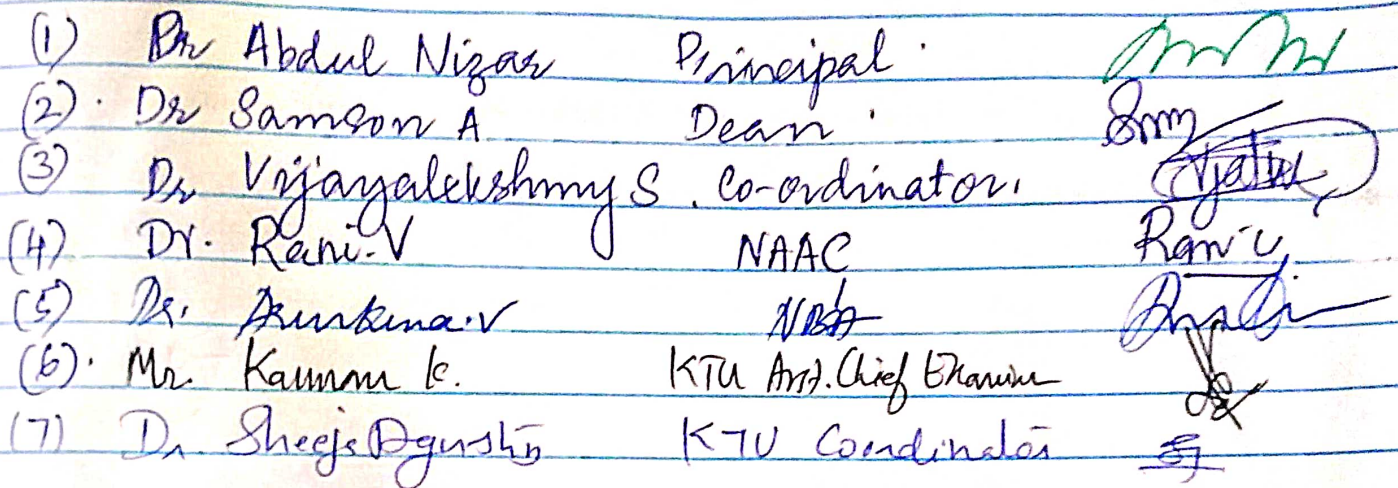 (1) Dr Abdul Nizar Principal
(2) Dr Samson A Dean
(3) Dr Vijayalekshmy S. Co-ordinator
(4) Dr. Rani.V NAAC Rani V
(5) Dr. V NBA
(6) Mr. Kannan K. KTU Asst. Chief
(7) Dr Sheeja Agustin KTU Coordinator